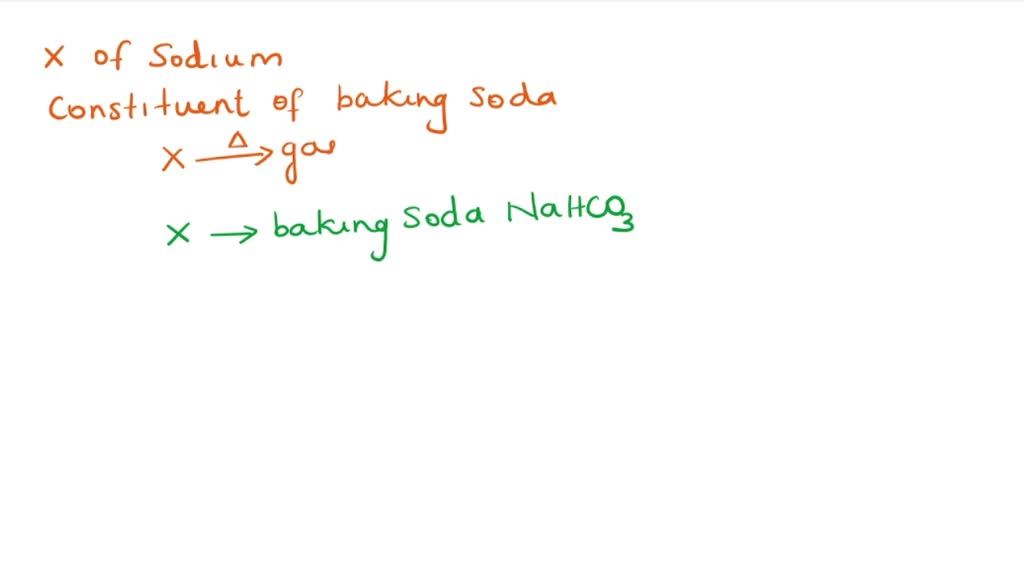 X of Sodium
Constituent of baking soda
X Δ→ gas
X → baking soda NaHCO₃